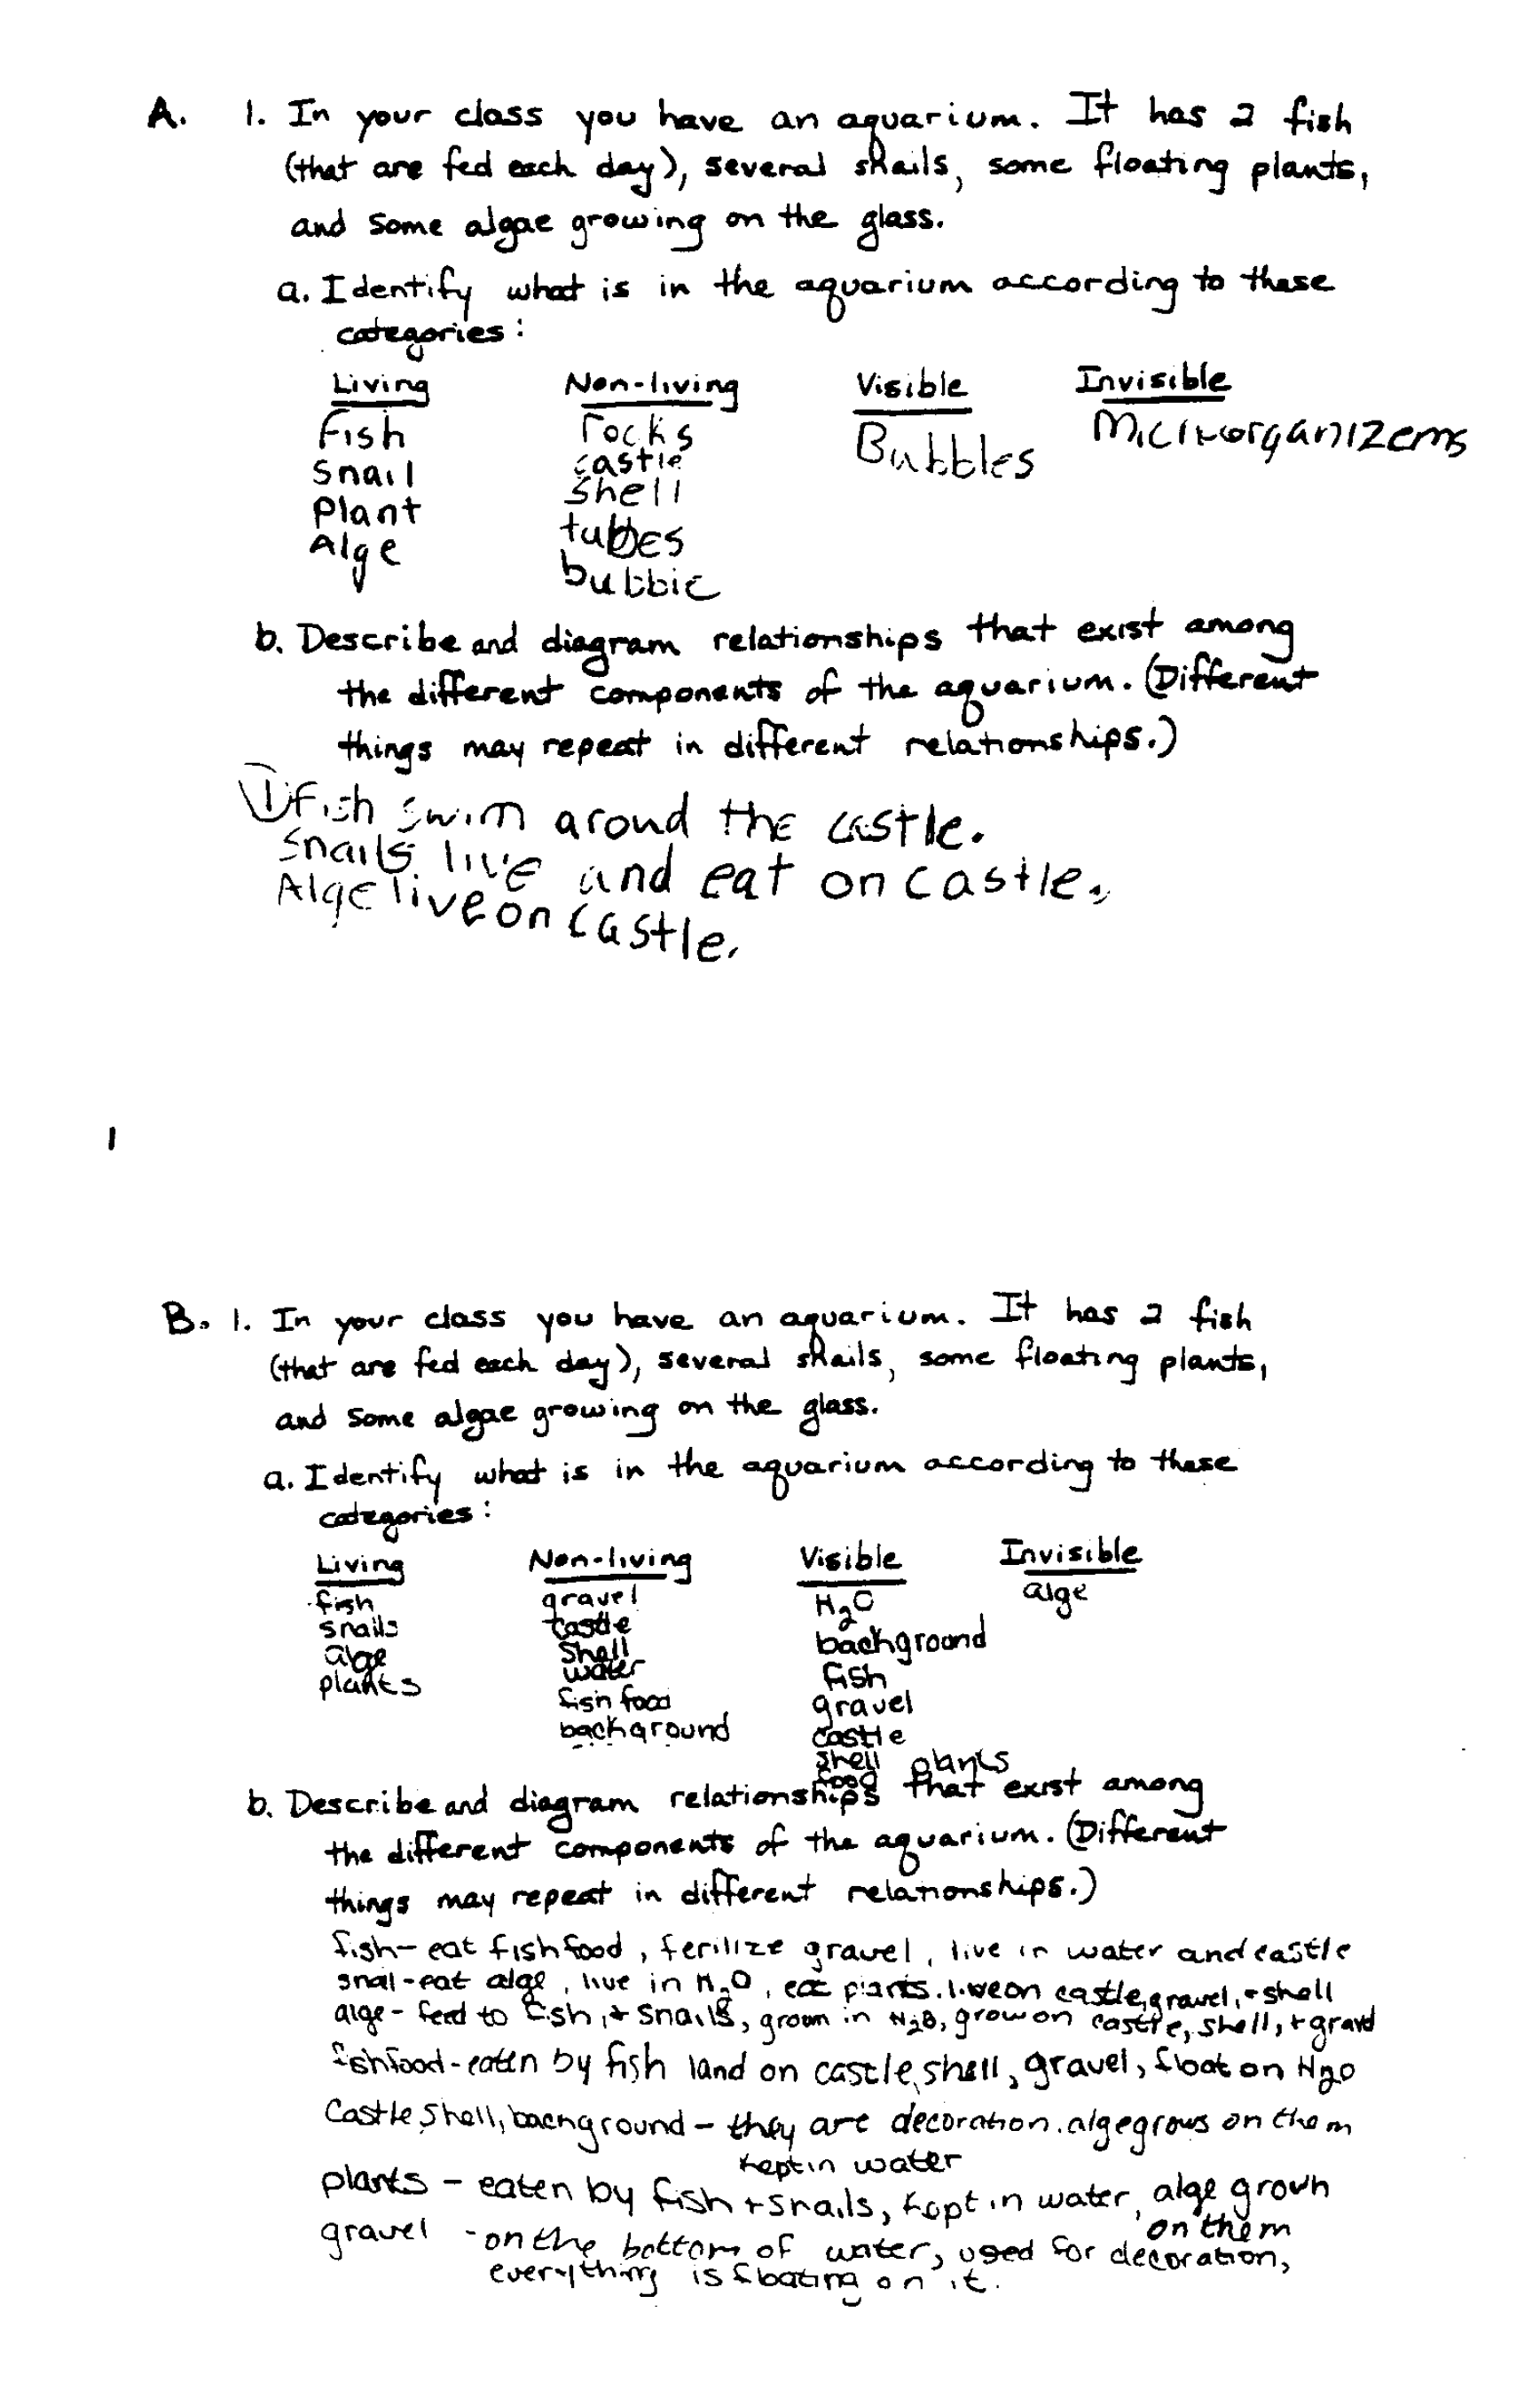 A. 1. In your class you have an aquarium. It has 2 fish
(that are fed each day), several snails, some floating plants,
and some algae growing on the glass.
a. Identify what is in the aquarium according to these
categories:
Living Non-living Visible Invisible
Fish rocks Bubbles
Snail castle
Plant shell
Alge tubes
bubble
b. Describe and diagram relationships that exist among
the different components of the aquarium. (Different
things may repeat in different relationships.)
① Fish swim arond the castle.
Snails live and eat on castle.
Alge live on castle.
1
B. 1. In your class you have an aquarium. It has 2 fish
(that are fed each day), several snails, some floating plants,
and some algae growing on the glass.
a. Identify what is in the aquarium according to these
categories:
Living Non-living Visible Invisible
fish gravel H2O alge
snails castle background
alge shell fish
plants water gravel
fish food castle
background shell plants
food
b. Describe and diagram relationships that exist among
the different components of the aquarium. (Different
things may repeat in different relationships.)
fish - eat fish food, ferilize gravel, live in water and castle
snail - eat alge, live in H2O, eat plants. live on castle, gravel, + shell
alge - feed to fish, + snails, grown in H2O, grow on castle, shell, + gravel
fishfood - eaten by fish land on castle, shell, gravel, float on H2O
Castle, shell, background - they are decoration. alge grows on them
kept in water
plants - eaten by fish + snails, kept in water, alge grown
on them
gravel - on the bottom of water, used for decoration,
everything is floating on it.